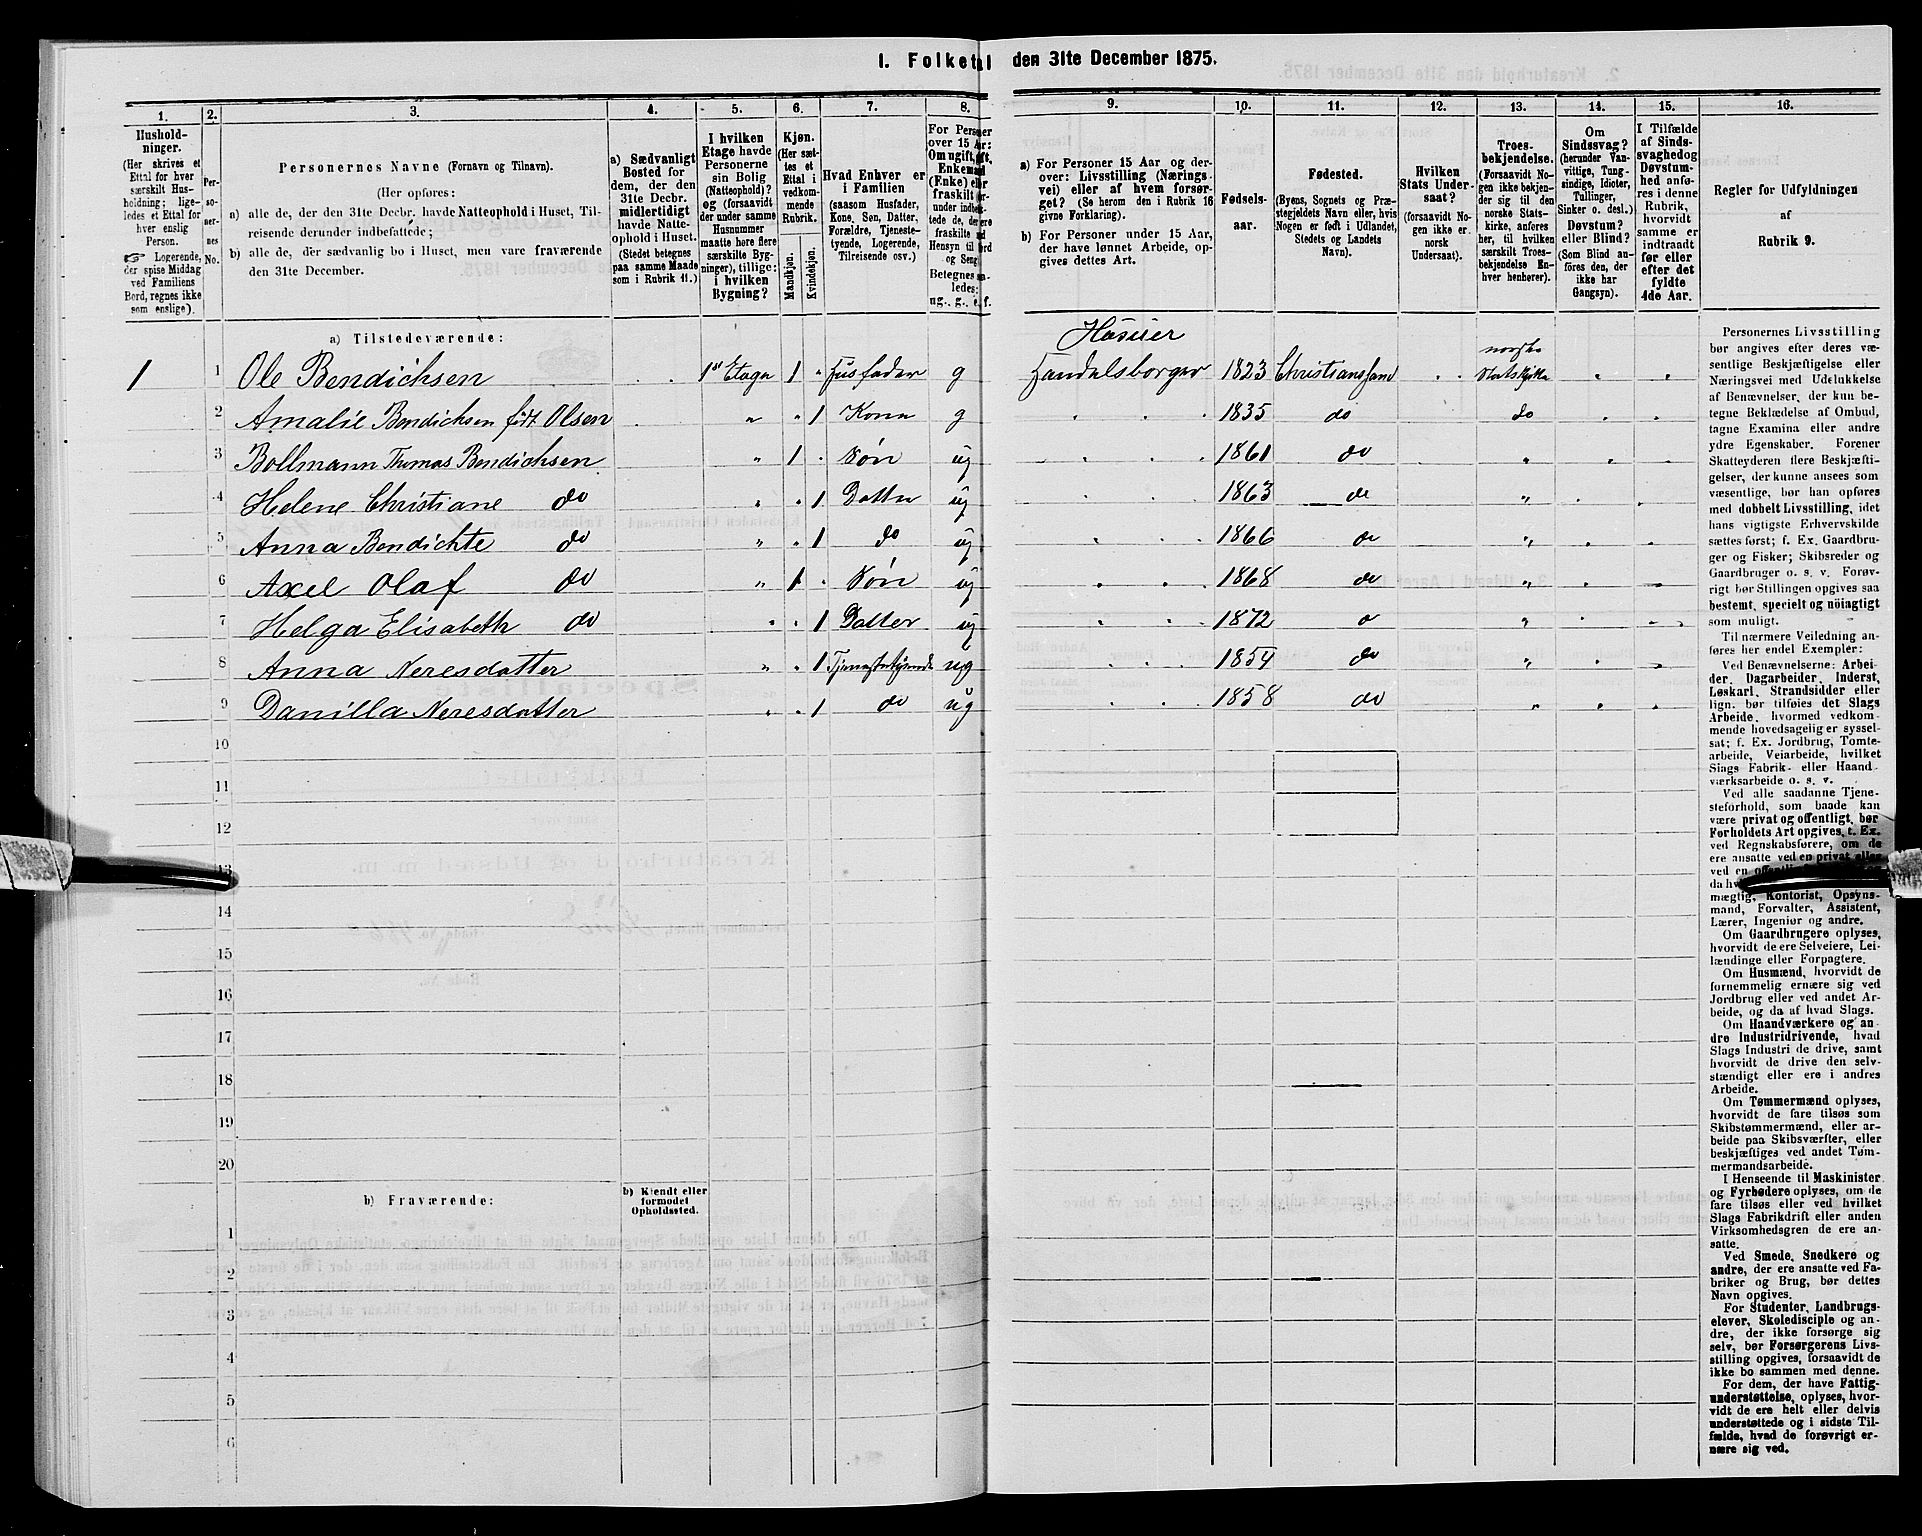 1. Folketal den 31te December 1875.
1. 2. 3. 4. 5. 6. 7. 8. 9. 10. 11. 12. 13. 14. 15. 16.
Hushold-
ninger.
(Her skrives et
Ettal for hver
særskilt Hus-
holdning; lige-
ledes et Ettal for
hver enslig
Person.
Logerende,
der spise Middag
ved Familiens
Bord, regnes ikke
som enslige).
Per-
so-
ner-
nes
No.
Personernes Navne (Fornavn og Tilnavn).
(Her opføres:
a) alle de, der den 31te Decbr. havde Natteophold i Huset, Til-
reisende derunder indbefattede;
b) alle de, der sædvanlig bo i Huset, men vare fraværende
den 31te December.
a) Sædvanligt
Bosted for
dem, der den
31te Decbr.
midlertidigt
havde Natte-
ophold i Huset.
(Stedet betegnes
paa samme Maade
som i Rubrik 11.)
I hvilken
Etage havde
Personerne
sin Bolig
(Natteophold)?
og (forsaavidt
der under samme
Husnummer
maatte høre flere
særskilte Byg-
ninger), tillige:
i hvilken
Bygning?
Kjøn.
(Her sæt-
tes et
Ettal i
vedkom-
mende
Rubrik.
Mandkjøn.
Kvindekjøn.
Hvad Enhver er
i Familien
(saasom Husfader,
Kone, Søn, Datter,
Forældre, Tjeneste-
tyende, Logerende,
Tilreisende osv.)
For Personer
over 15 Aar:
Om ugift, gift,
Enkemand
(Enke) eller
fraskilt
a) For Personer 15 Aar og der-
over: Livsstilling (Nærings-
vei) eller af hvem forsør-
get? (Se herom den i Rubrik 16
givne Forklaring).
b) For Personer under 15 Aar,
der have lønnet Arbeide, op-
gives dettes Art.
Fødsels-
aar.
Fødested.
(Byens, Sognets og Præ-
stegjeldets Navn eller, hvis
Nogen er født i Udlandet,
Stedets og Landets
Navn).
Hvilken
Stats Under-
saat?
(forsaavidt No-
gen ikke er
norsk
Undersaat).
Troes-
bekjendelse.
(Forsaavidt No-
gen ikke bekjen-
der sig til den
norske Stats-
kirke, anføres
her, til hvilken
særskilt Troes-
bekjendelse En-
hver henhører).
Om
Sindssvag?
(herunder Van-
vittige, Tung-
sindige, Idioter,
Tullinger,
Sinker o. desl.)
Døvstum?
eller Blind?
(Som Blind an-
føres den, der
ikke har
Gangsyn).
I Tilfælde
af Sinds-
svaghed og
Døvstum-
hed anfø-
res i denne
Rubrik,
hvorvidt
samme er
indtraadt
før eller
efter det
fyldte
4de Aar.
Regler for Udfyldningen
af
Rubrik 9.
a) Tilstedeværende:
1 1 Ole Bendichsen 1st Etage 1 Husfader g Huseier Handelsborger 1823 Christianssand norske Statskirke
2 Amalie Bendichsen født Olsen " 1 Kone g 1835 do do
3 Bollmann Thomas Bendichsen " 1 Søn ug 1861 do "
4 Helene Christiane do " 1 Datter ug 1863 do "
5 Anna Bendichte do " 1 do ug 1866 do "
6 Axel Olaf do " 1 Søn ug 1868 do "
7 Helga Elisabeth do " 1 Datter ug 1872 "
8 Anna Neresdatter " 1 Tjenestetyende ug 1854 do "
9 Danilla Neresdatter " 1 do ug 1858 do "
10
11
12
13
14
15
16
17
18
19
20
b) Fraværende:
b) Kjendt eller
formodet
Opholdssted.
1
2
3
4
5
6
Personernes Livsstilling
bør angives efter deres væ-
sentlige Beskjæftigelse eller
Næringsvei med Udelukkelse
af Benævnelser, der kun be-
tegne Beklædelse af Ombud,
tagne Examina eller andre
ydre Egenskaber. Forener
Skatteyderen flere Beskjæfti-
gelser, der kunne ansees som
væsentlige, bør han opføres
med dobbelt Livsstilling, idet
hans vigtigste Erhvervskilde
sættes først; f. Ex. Gaardbru-
ger og Fisker; Skibsreder og
Gaardbruger o. s. v. Forøv-
rigt bør Stillingen opgives saa
bestemt, specielt og nöiagtigt
som muligt.
Til nærmere Veiledning an-
føres her endel Exempler:
Ved Benævnelserne: Arbei-
der, Dagarbeider, Inderst,
Løskarl, Strandsidder eller
lign. bør tilføies det Slags
Arbeide, hvormed vedkom-
mende hovedsagelig er syssel-
sat; f. Ex. Jordbrug, Tomte-
arbeide, Veiarbeide, hvilket
Slags Fabrik- eller Haand-
værksarbeide o. s. v.
Ved alle saadanne Tjene-
steforhold, som baade kan
være privat og offentligt, bør
Forholdets Art opgives, t. Ex.
ved Regnskabsførere, om de
ere ansatte ved en privat eller
mægtig, Kontorist, Opsyns-
mand, Forvalter, Assistent,
Lærer, Ingeniør og andre.
Om Gaardbrugere oplyses,
hvorvidt de ere Selveiere, Lei-
lændinge eller Forpagtere.
Om Husmænd, hvorvidt de
fornemmelig ernære sig ved
Jordbrug eller ved andet Ar-
beide, og da af hvad Slags.
Om Haandværkere og an-
dre Industridrivende, hvad
Slags Industri de drive, samt
hvorvidt de drive den selv-
stændigt eller ere i andres
Arbeide.
Om Tømmermænd oplyses,
hvorvidt de fare tilsøs som
Skibstømmermænd, eller ar-
beide paa Skibsværfter, eller
beskjæftiges ved andet Tøm-
mermandsarbeide.
I Henseende til Maskinister
og Fyrbødere oplyses, om de
fare tilsøs eller ved hvilket
Slags Fabrikdrift eller anden
Virksomhedsgren de ere an-
satte.
Ved Smede, Snedkere og
andre, der ere ansatte ved Fa-
briker og Brug, bør dettes
Navn opgives.
For Studenter, Landbrugs-
elever, Skoledisciple og an-
dre, der ikke forsørge sig
selv, bør Forsørgerens Livs-
stilling opgives, forsaavidt de
ikke bo sammen med denne.
For dem, der have Fattig-
understøttelse, oplyses, hvor-
vidt de ere helt eller delvis
understøttede og i sidste Til-
fælde, hvad de forøvrigt er-
nære sig ved.